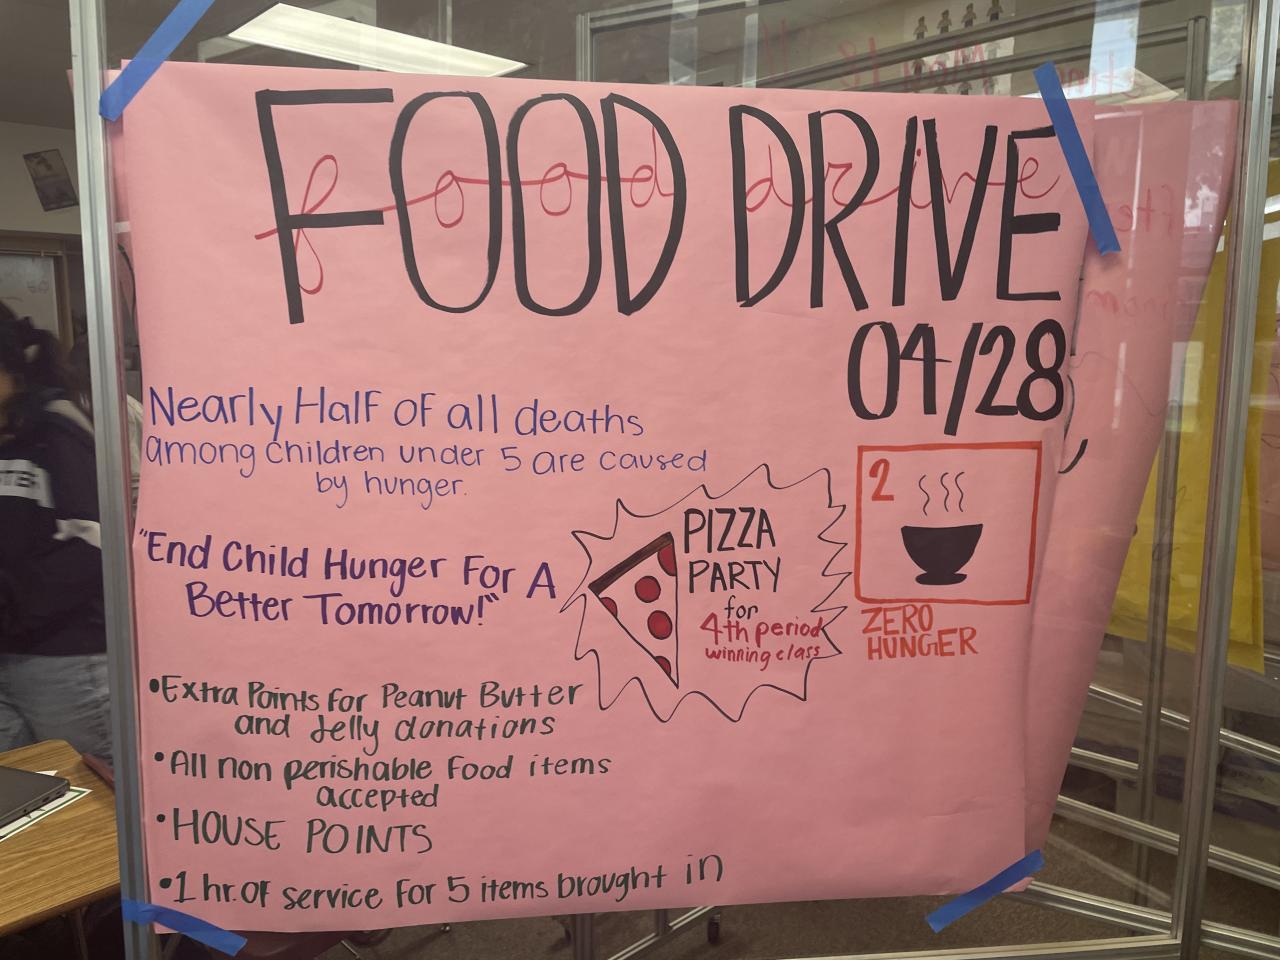 FOOD DRIVE
food drive
04/28
Nearly Half of all deaths
among children under 5 are caused
by hunger.
"End Child Hunger For A
Better Tomorrow!"
PIZZA
PARTY
for
4th period
winning class
2
ZERO
HUNGER
•Extra Points for Peanut Butter
and Jelly donations
•All non perishable food items
accepted
•HOUSE POINTS
•1 hr. of service for 5 items brought in